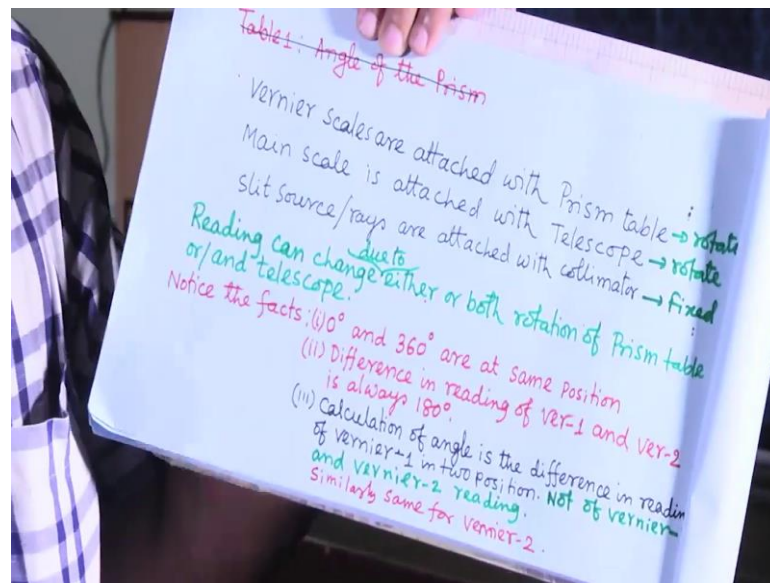 Table 1: Angle of the Prism
Vernier scales are attached with Prism table → rotate
Main scale is attached with Telescope → rotate
slit source/rays are attached with collimator → fixed
Reading can change due to either or both rotation of Prism table
or/and telescope.
Notice the facts: (i) 0° and 360° are at same position
(ii) Difference in reading of ver-1 and ver-2
is always 180°.
(iii) Calculation of angle is the difference in readin
of vernier-1 in two position. Not of vernier-
and vernier-2 reading.
Similarly same for vernier-2.